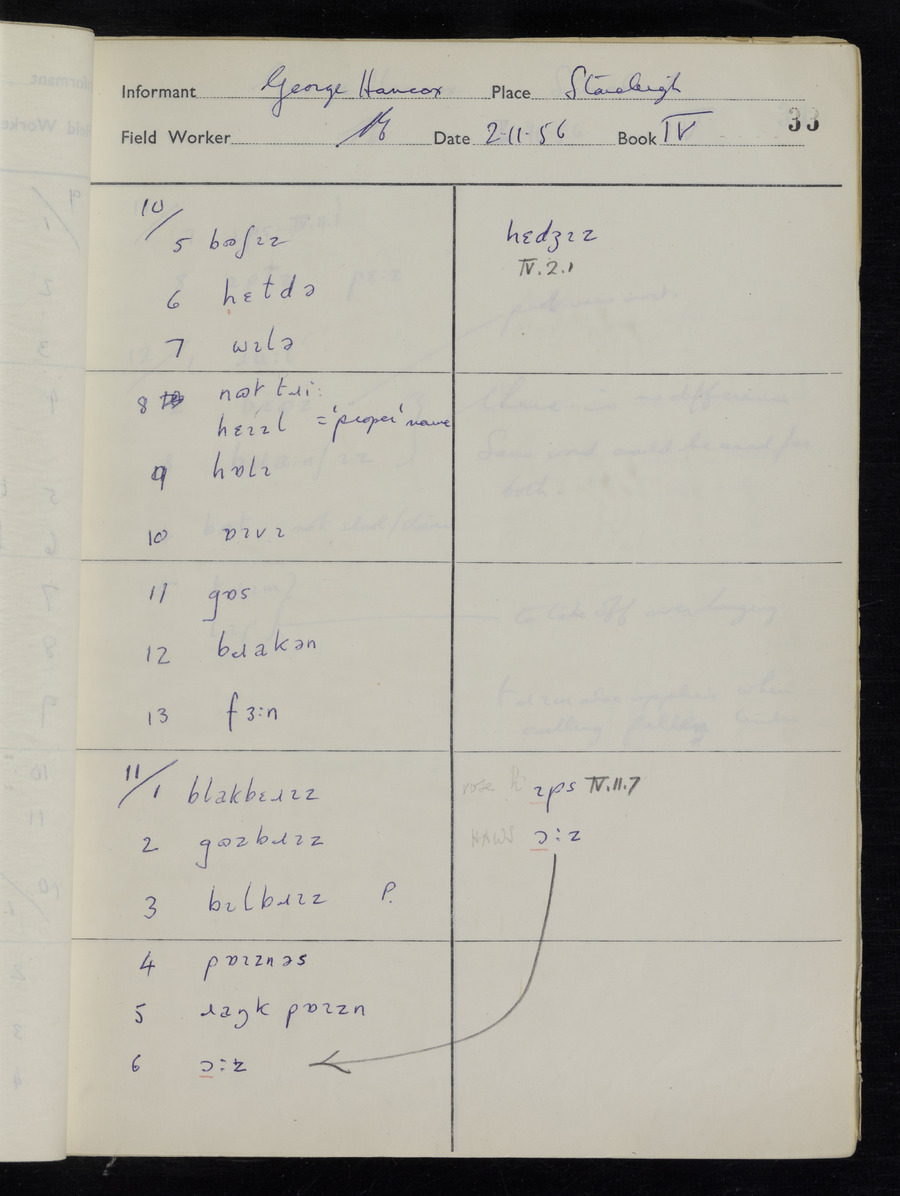 Informant George Hancox Place Stoneleigh
Field Worker Date 2-11-56 Book IV 33
10/
5 bʊʃɪz
6 hɛtdə
7 wɪlə
8 nʊt tɹi:
hɛɪzl = 'proper' name
9 hɒlɪ
10 ɒɪvɪ
11 gɒs
12 bɹakən
13 fɜ:n
11/1 blakbɛɹɪz
2 gʊzbɹɪz
3 bɪlbɹɪz P.
4 pɒɪznəs
5 ɹaŋk pɒɪzn
6 ɔ:z
hɛdʒɪz
IV.2.1
rose h ɪps IV.11.7
HAWS ɔ:z